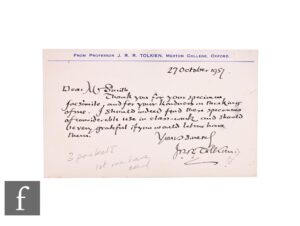 FROM PROFESSOR J. R. R. TOLKIEN, MERTON COLLEGE, OXFORD.
27 October 1957
Dear Mr Smith
Thank you for your specimen
facsimile, and for your kindness in thinking
of me. I should indeed find these specimens
of considerable use in class-work, and should
be very grateful if you would let me have
them.
Yours sincerely
J R R Tolkien
3 
let me have
f